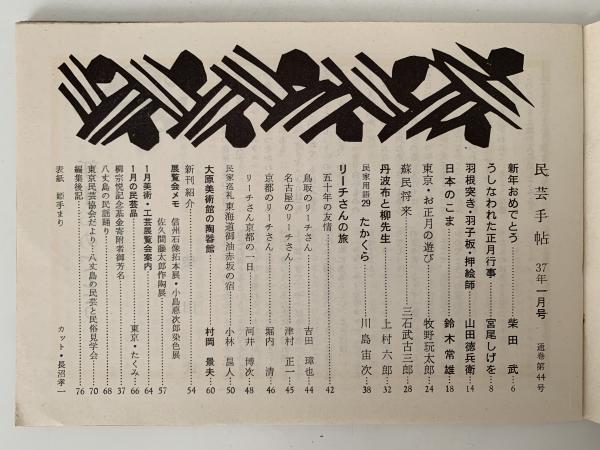 民芸手帖 37年一月号 通巻第44号
新年おめでとう……柴田 武…6
うしなわれた正月行事……宮尾しげを…8
羽根突き・羽子板・押絵師……山田徳兵衛…14
日本のこま……鈴木常雄…18
東京・お正月の遊び……牧野玩太郎…24
蘇民将来……三石武古三郎…28
丹波布と柳先生……上村六郎…32
民家用語29 たかくら……川島宙次…38
リーチさんの旅
五十年の友情……42
鳥取のリーチさん……吉田 璋也…44
名古屋のリーチさん……津村 正一…45
京都のリーチさん……堀内 清…46
リーチさん京都の一日……河井 博次…48
民家巡礼 東海道御油赤坂の宿……小林 昌人…50
大原美術館の陶器館……村岡 景夫…60
新刊紹介……54
展覧会メモ 信州石像拓本展・小島悳次郎染色展
佐久間藤太郎作陶展……57
1月美術・工芸展覧会案内……64
1月の民芸品……東京・たくみ…66
柳宗悦記念基金寄附者御芳名……37
八丈島の民謡踊り……68
東京民芸協会だより…八丈島の民芸と民俗見学会……70
編集後記……76
表紙 姫手まり
カット・長沼孝一